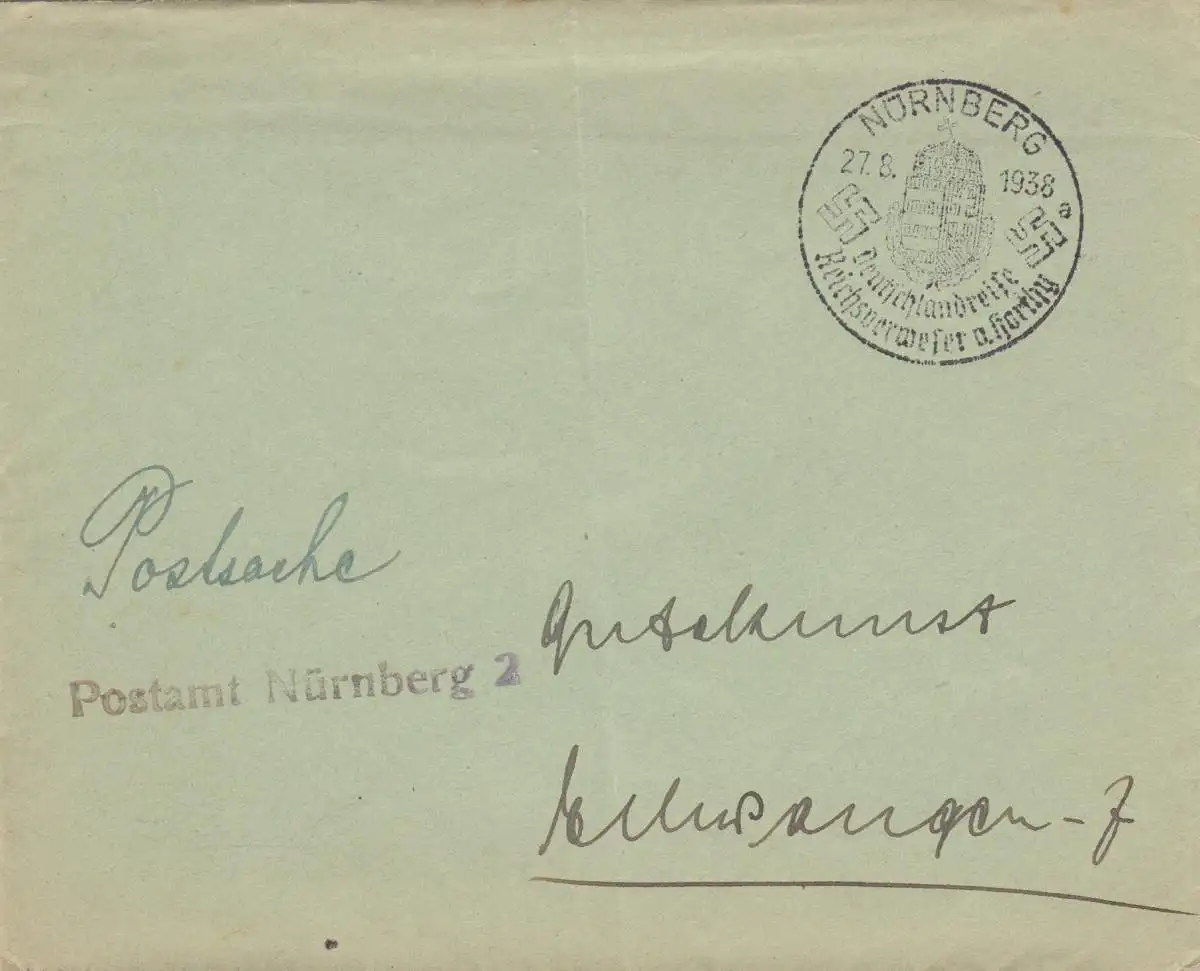 NÜRNBERG
27.8. 1938
a
Deutschlandreise
Reichsverweser v. Horthy
Postsache
Postamt Nürnberg 2
Gutekunst
Ellwangen-J